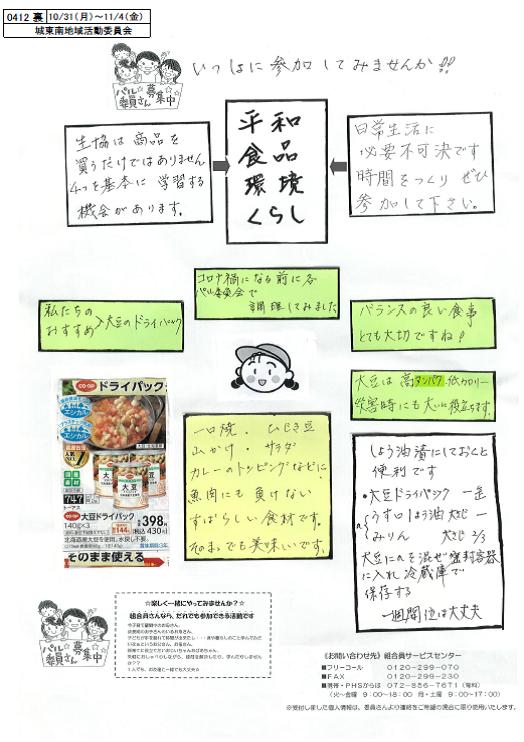 0412 裏
10/31(月)～11/4(金)
城東南地域活動委員会
パル☆
委員さん募集中
いっしょに参加してみませんか!!
生協は商品を
買うだけではありません
4つを基本に学習する
機会があります。
平和
食品
環境
くらし
日常生活に
必要不可決です
時間をつくり ぜひ
参加して下さい。
コロナ禍になる前に各
パル委員会で
調理してみました
私たちの
おすすめ>大豆のドライパック
バランスの良い食事
とても大切ですね!
大豆は高タンパク低カロリー
災害時にも大いに役立ちます。
CO・OP ドライパック
エシカル
大豆
747
CO・OP 大豆ドライパック
140g×3
398円
(税込430円)
北海道産大豆を使用。水戻し不要。
そのまま使える
一口焼・ひじき豆
山かけ・サラダ
カレーのトッピングなどに
魚肉にも負けない
すばらしい食材です。
そのまゝでも美味しいです。
しょう油漬にしておくと
便利です
・大豆ドライパック 一缶
a うす口しょう油 大さじ一
みりん 大さじ2/3
大豆にaを混ぜ密封容器
に入れ冷蔵庫で
保存する
一週間位は大丈夫
パル☆
委員さん募集中
☆楽しく一緒にやってみませんか?☆
組合員さんなら、だれでも参加できる活動です
《お問い合わせ先》組合員サービスセンター
■フリーコール 0120-299-070
■FAX 0120-299-230
■携帯・PHSからは 072-856-7671(有料)
(火～金曜 9:00～18:00 月・土曜 9:00～17:00)
※受付しました個人情報は、委員さんより連絡をご希望の場合に限り使用いたします。